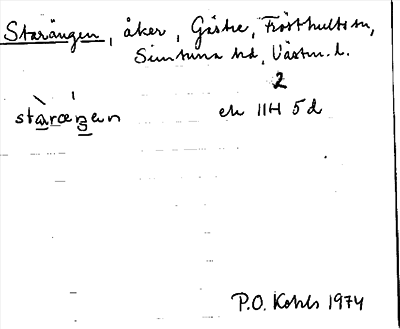 Starängen, åker, Gästre, Frösthults sn,
Simtuna hd, Västm. l.
2
staræŋen ek 11H 5d
P.O. Kohls 1974